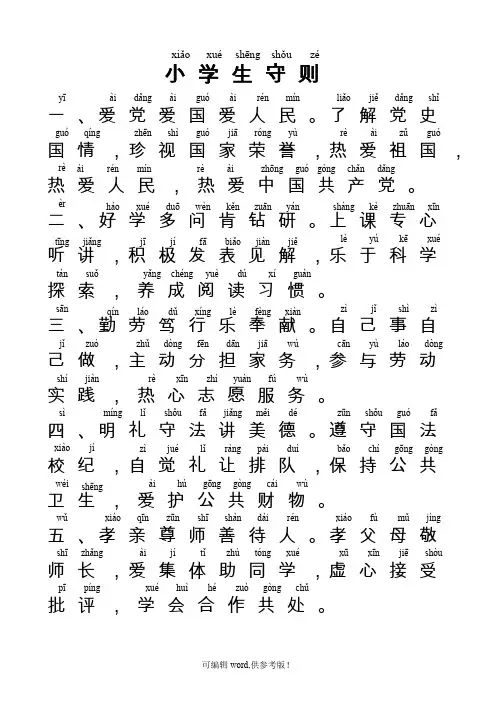 xiǎo xué shēng shǒu zé
小学生守则
yī ài dǎng ài guó ài rén mín liǎo jiě dǎng shǐ
一、爱党爱国爱人民。了解党史
guó qíng zhēn shì guó jiā róng yù rè ài zǔ guó
国情,珍视国家荣誉,热爱祖国,
rè ài rén mín rè ài zhōng guó gòng chǎn dǎng
热爱人民,热爱中国共产党。
èr hào xué duō wèn kěn zuān yán shàng kè zhuān xīn
二、好学多问肯钻研。上课专心
tīng jiǎng jī jí fā biǎo jiàn jiě lè yú kē xué
听讲,积极发表见解,乐于科学
tàn suǒ yǎng chéng yuè dú xí guàn
探索,养成阅读习惯。
sān qín láo dǔ xíng lè fèng xiàn zì jǐ shì zì
三、勤劳笃行乐奉献。自己事自
jǐ zuò zhǔ dòng fēn dān jiā wù cān yù láo dòng
己做,主动分担家务,参与劳动
shí jiàn rè xīn zhì yuàn fú wù
实践,热心志愿服务。
sì míng lǐ shǒu fǎ jiǎng měi dé zūn shǒu guó fǎ
四、明礼守法讲美德。遵守国法
xiào jì zì jué lǐ ràng pái duì bǎo chí gōng gòng
校纪,自觉礼让排队,保持公共
wèi shēng ài hù gōng gòng cái wù
卫生,爱护公共财物。
wǔ xiào qīn zūn shī shàn dài rén xiào fù mǔ jìng
五、孝亲尊师善待人。孝父母敬
shī zhǎng ài jí tǐ zhù tóng xué xū xīn jiē shòu
师长,爱集体助同学,虚心接受
pī píng xué huì hé zuò gòng chǔ
批评,学会合作共处。
可编辑word,供参考版!